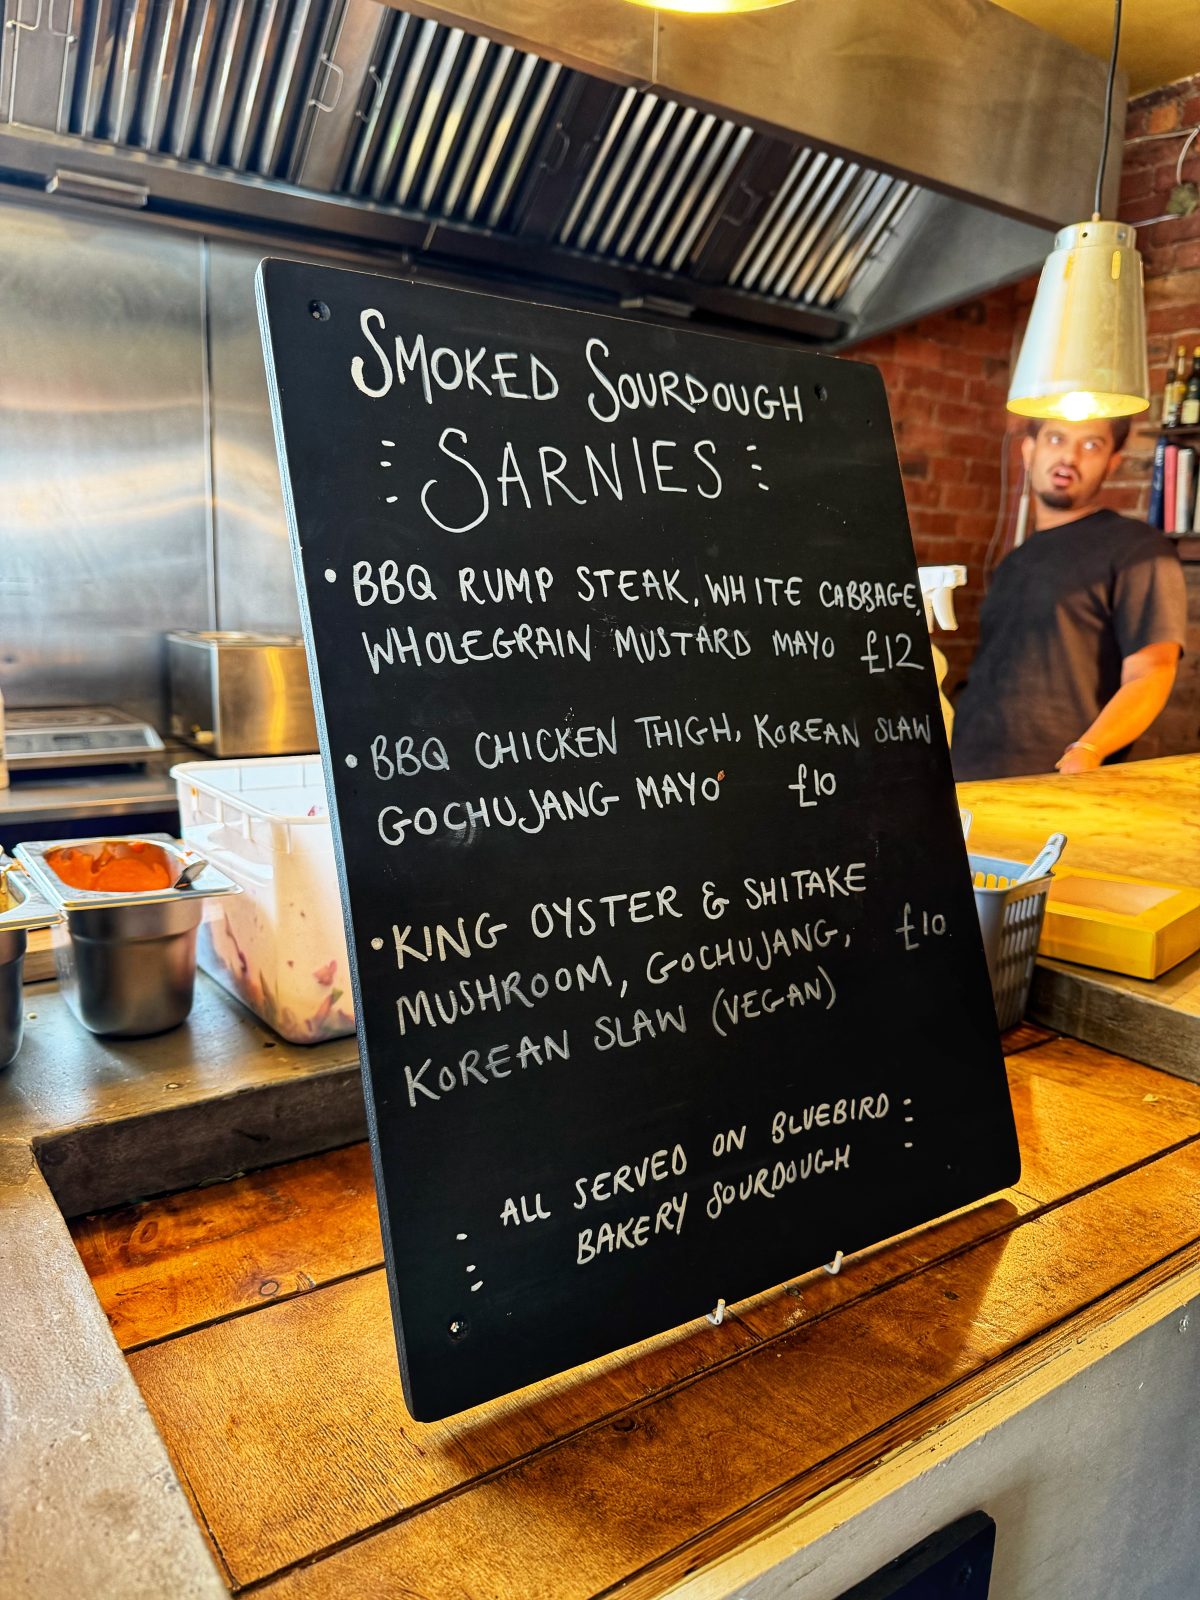 SMOKED SOURDOUGH
SARNIES
• BBQ RUMP STEAK, WHITE CABBAGE,
WHOLEGRAIN MUSTARD MAYO £12
• BBQ CHICKEN THIGH, KOREAN SLAW
GOCHUJANG MAYO £10
• KING OYSTER & SHITAKE
MUSHROOM, GOCHUJANG, £10
KOREAN SLAW (VEGAN)
ALL SERVED ON BLUEBIRD
BAKERY SOURDOUGH